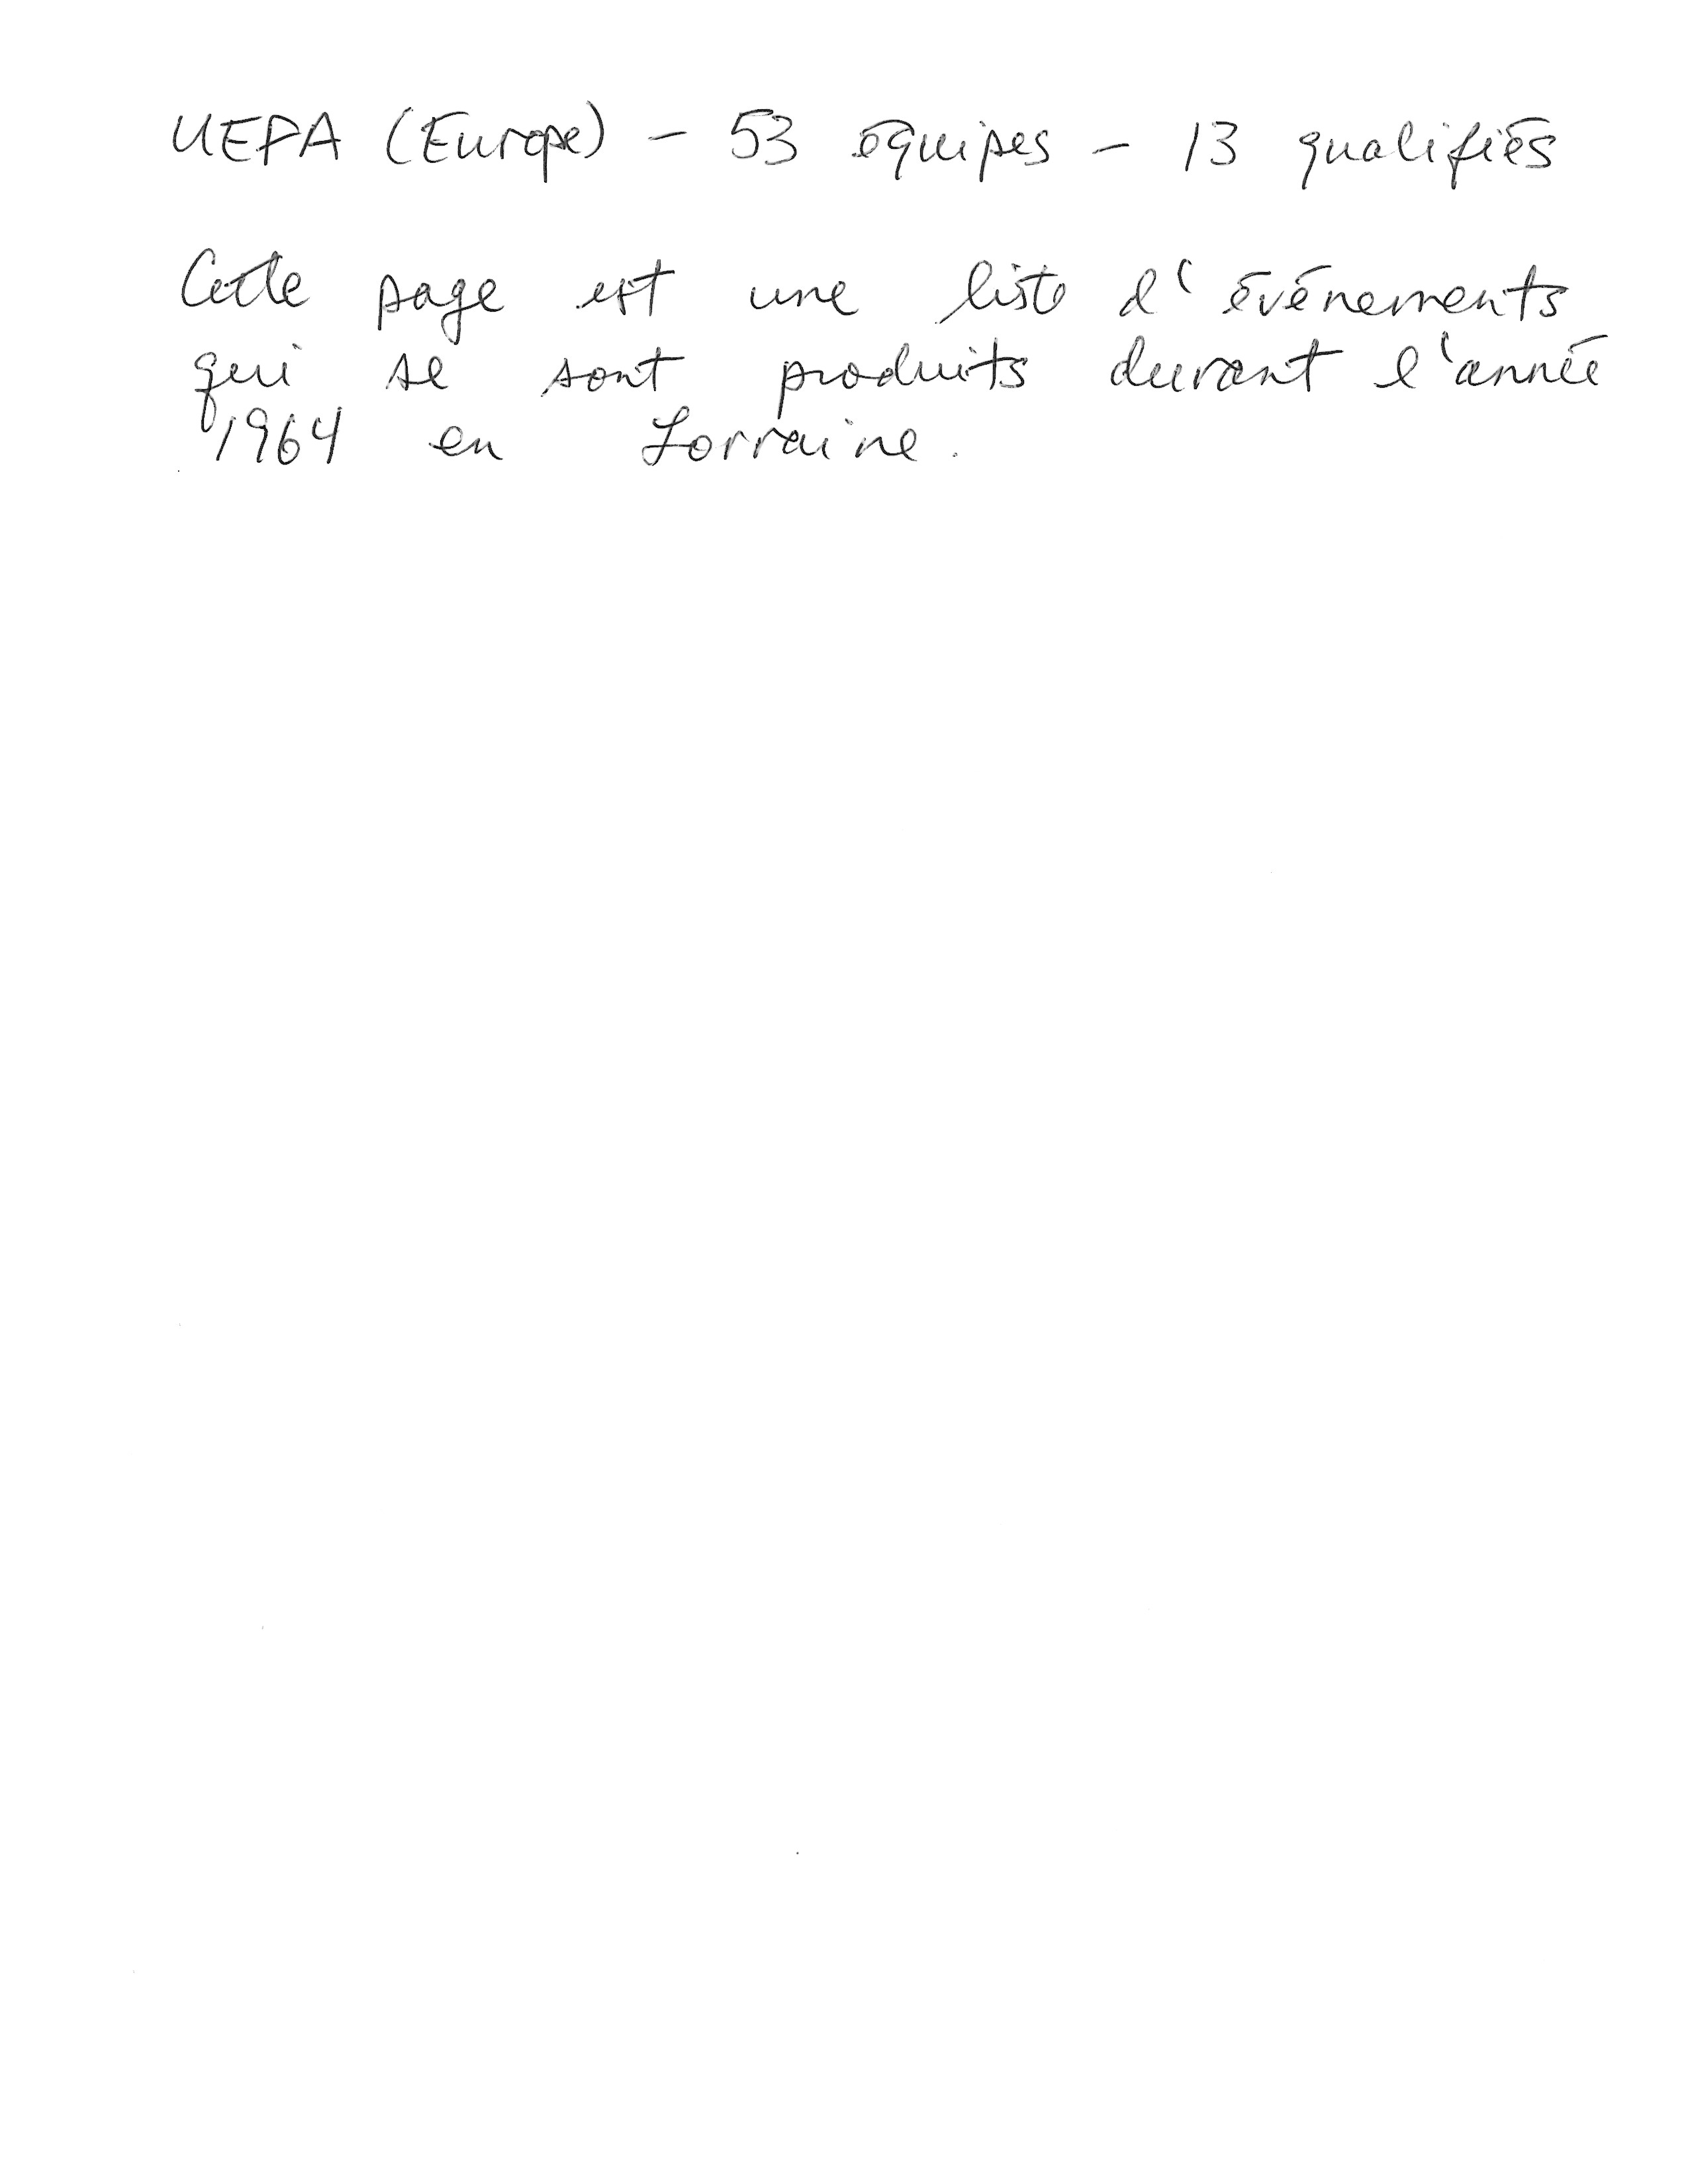 UEFA (Europe) - 53 équipes - 13 qualifiés
Cette page est une liste d'événements
qui se sont produits durant l'année
1964 en Lorraine.